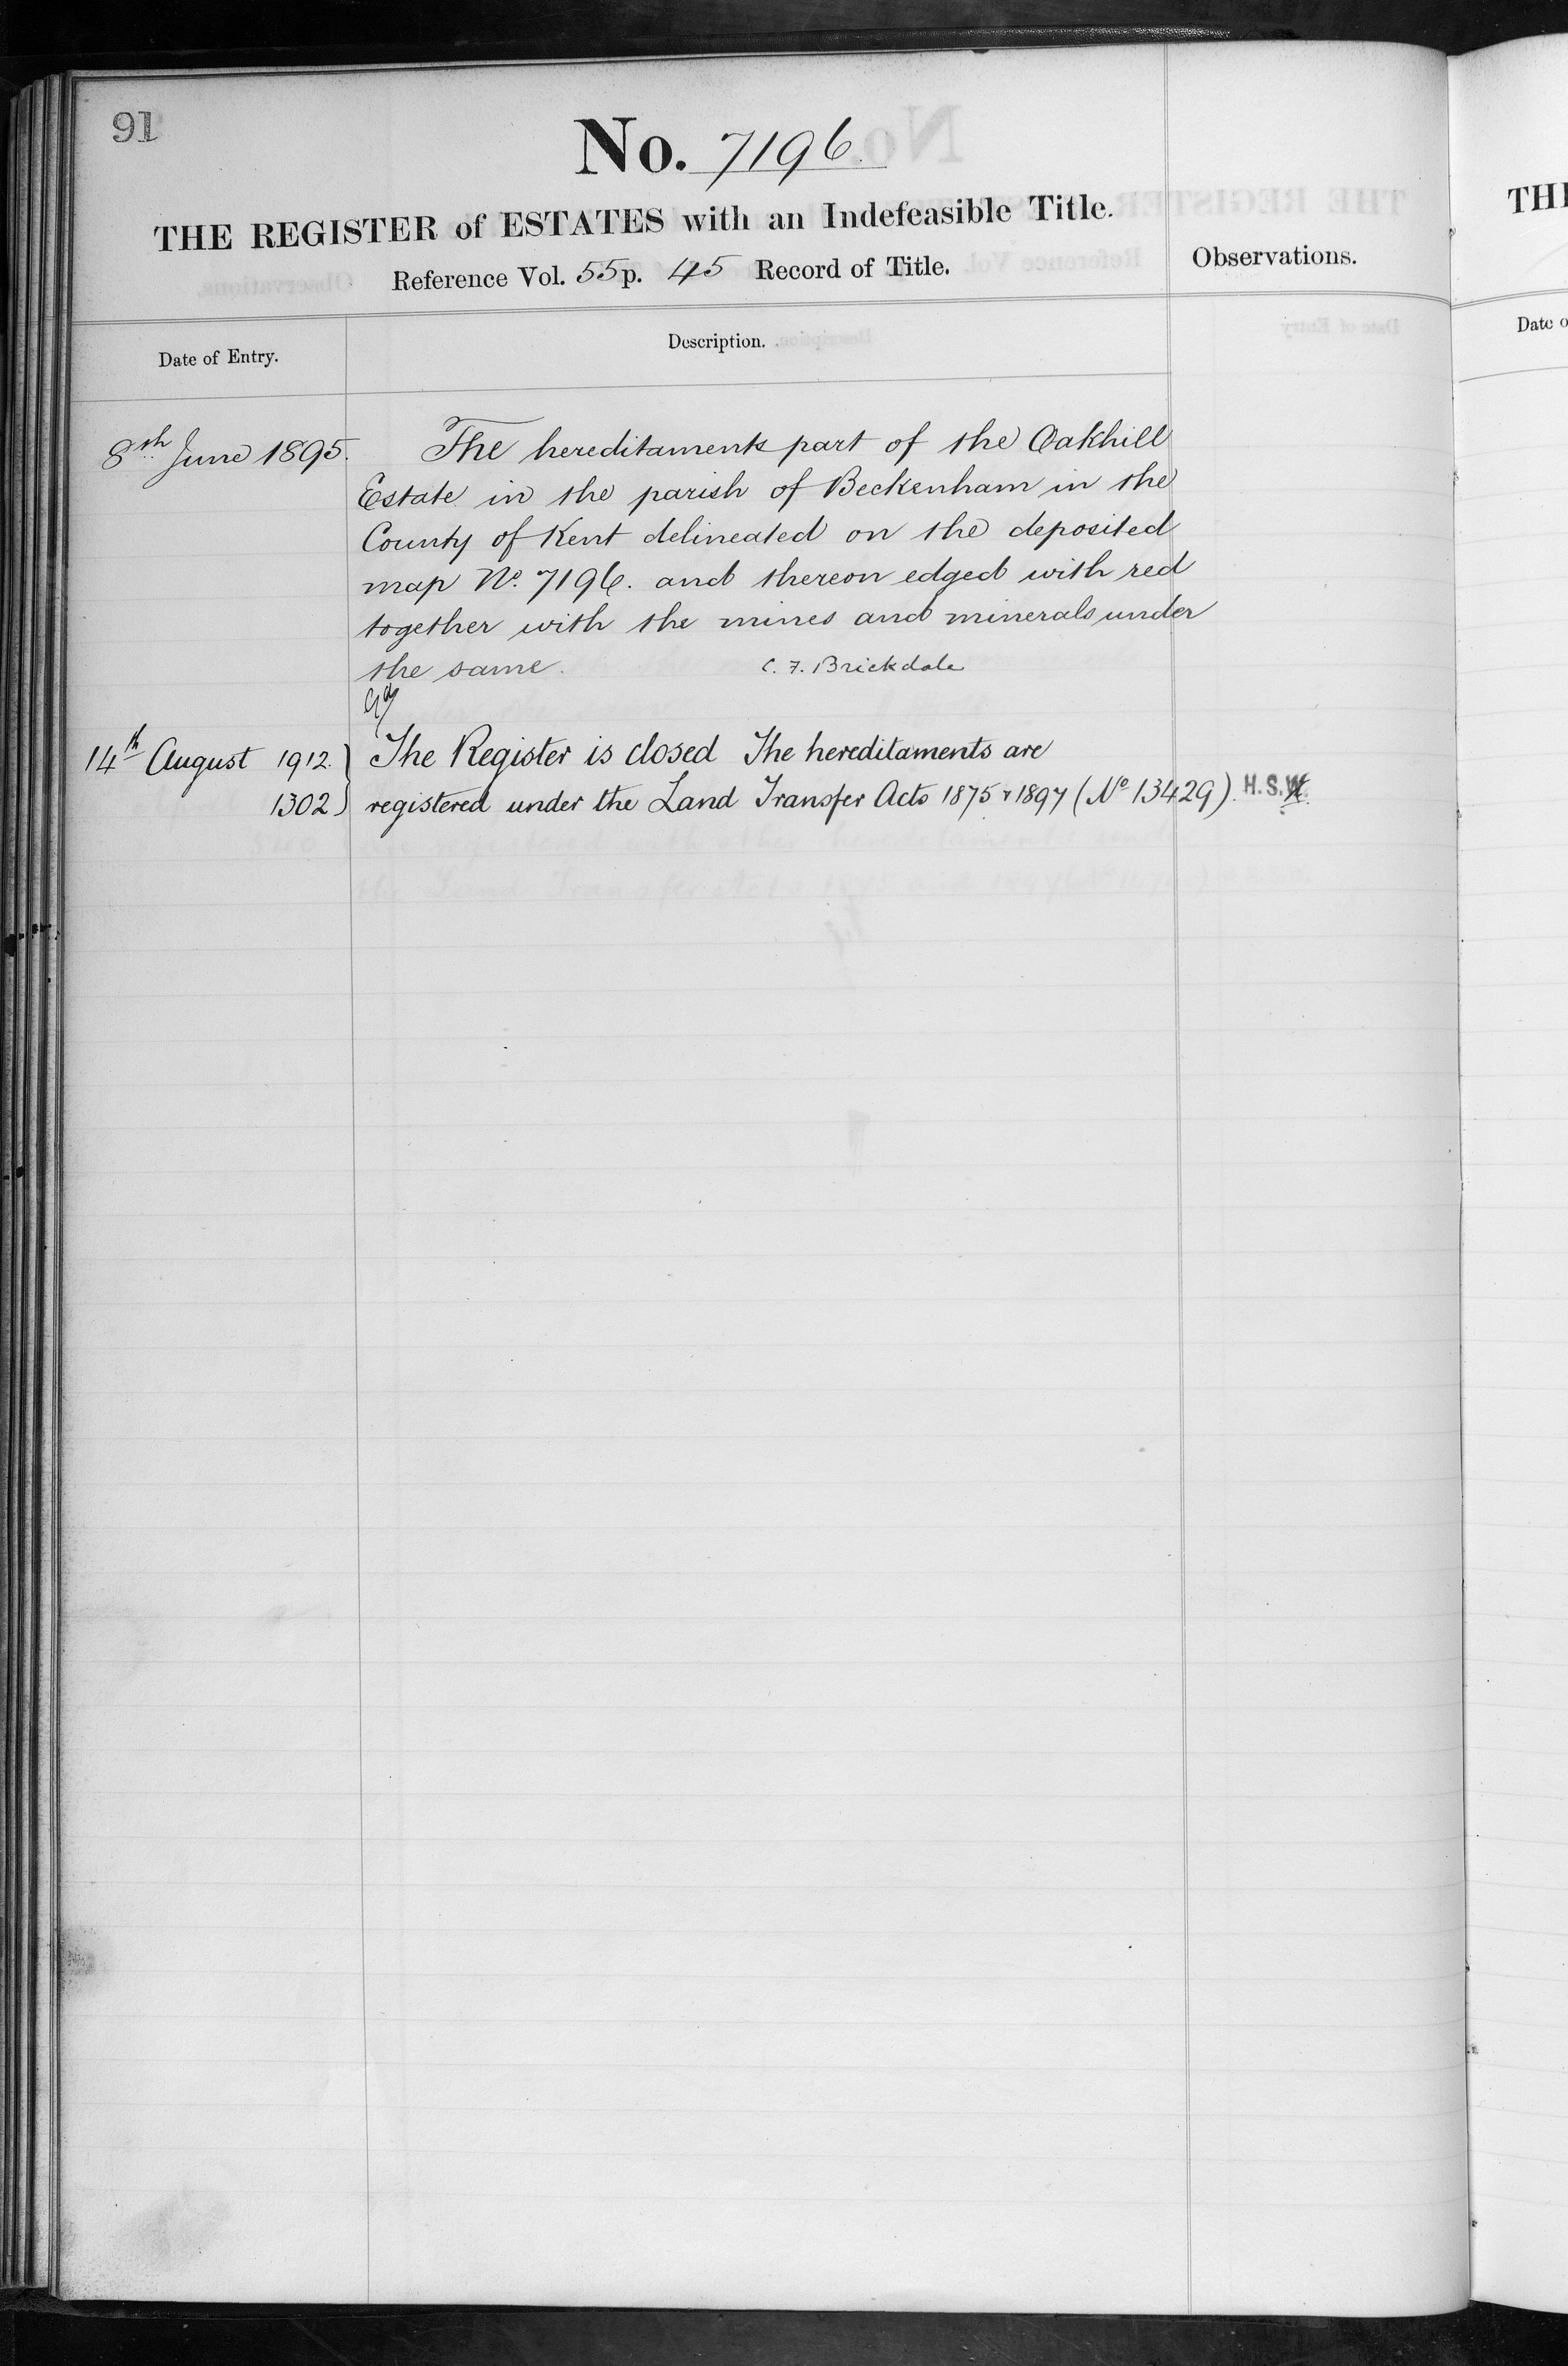 91
No. 7196.
THE REGISTER of ESTATES with an Indefeasible Title.
Reference Vol. 55 p. 45 Record of Title.
Observations.
Date of Entry.
Description.
8th June 1895.
The hereditaments part of the Oakhill
Estate in the parish of Beckenham in the
County of Kent delineated on the deposited
map No. 7196. and thereon edged with red
together with the mines and minerals under
the same. C. F. Brickdale
14th August 1912.
1302
The Register is closed The hereditaments are
registered under the Land Transfer Acts 1875 & 1897 (No 13429). H.S.
TH
Date o